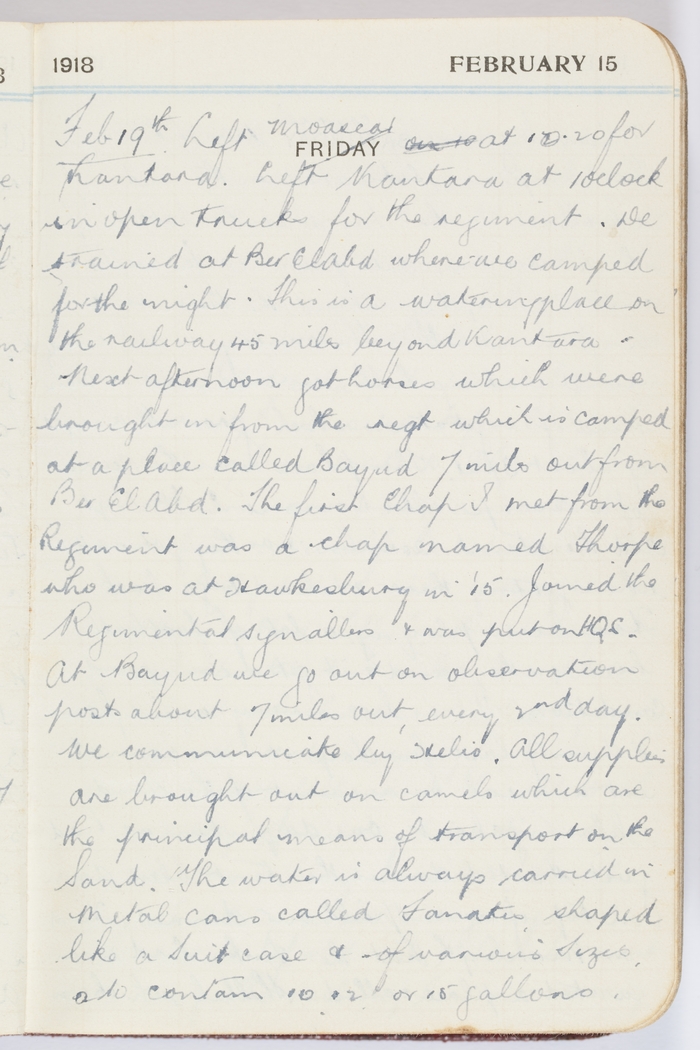 1918 FEBRUARY 15
Feb 19th. Left Moascar at 10.20 for
FRIDAY
Kantara. Left Kantara at 1oclock
in open trucks for the regiment. De
trained at Ber El Abd where we camped
for the night. This is a watering place on
the railway 45 miles beyond Kantara.
Next afternoon got horses which were
brought in from the regt which is camped
at a place called Bayud 7 miles out from
Ber El Abd. The first Chap I met from the
Regiment was a chap named Thorpe
who was at Hawkesbury in '15. Joined the
Regimental signallers & was put on HQS.
At Bayud we go out on observation
posts about 7 miles out, every 2nd day.
We communicate by Helio. All supplies
are brought out on camels which are
the principal means of transport on the
Sand. The water is always carried in
Metal cans called Fanatis, shaped
like a Suit case & of various Sizes,
to contain 10 12 or 15 gallons.